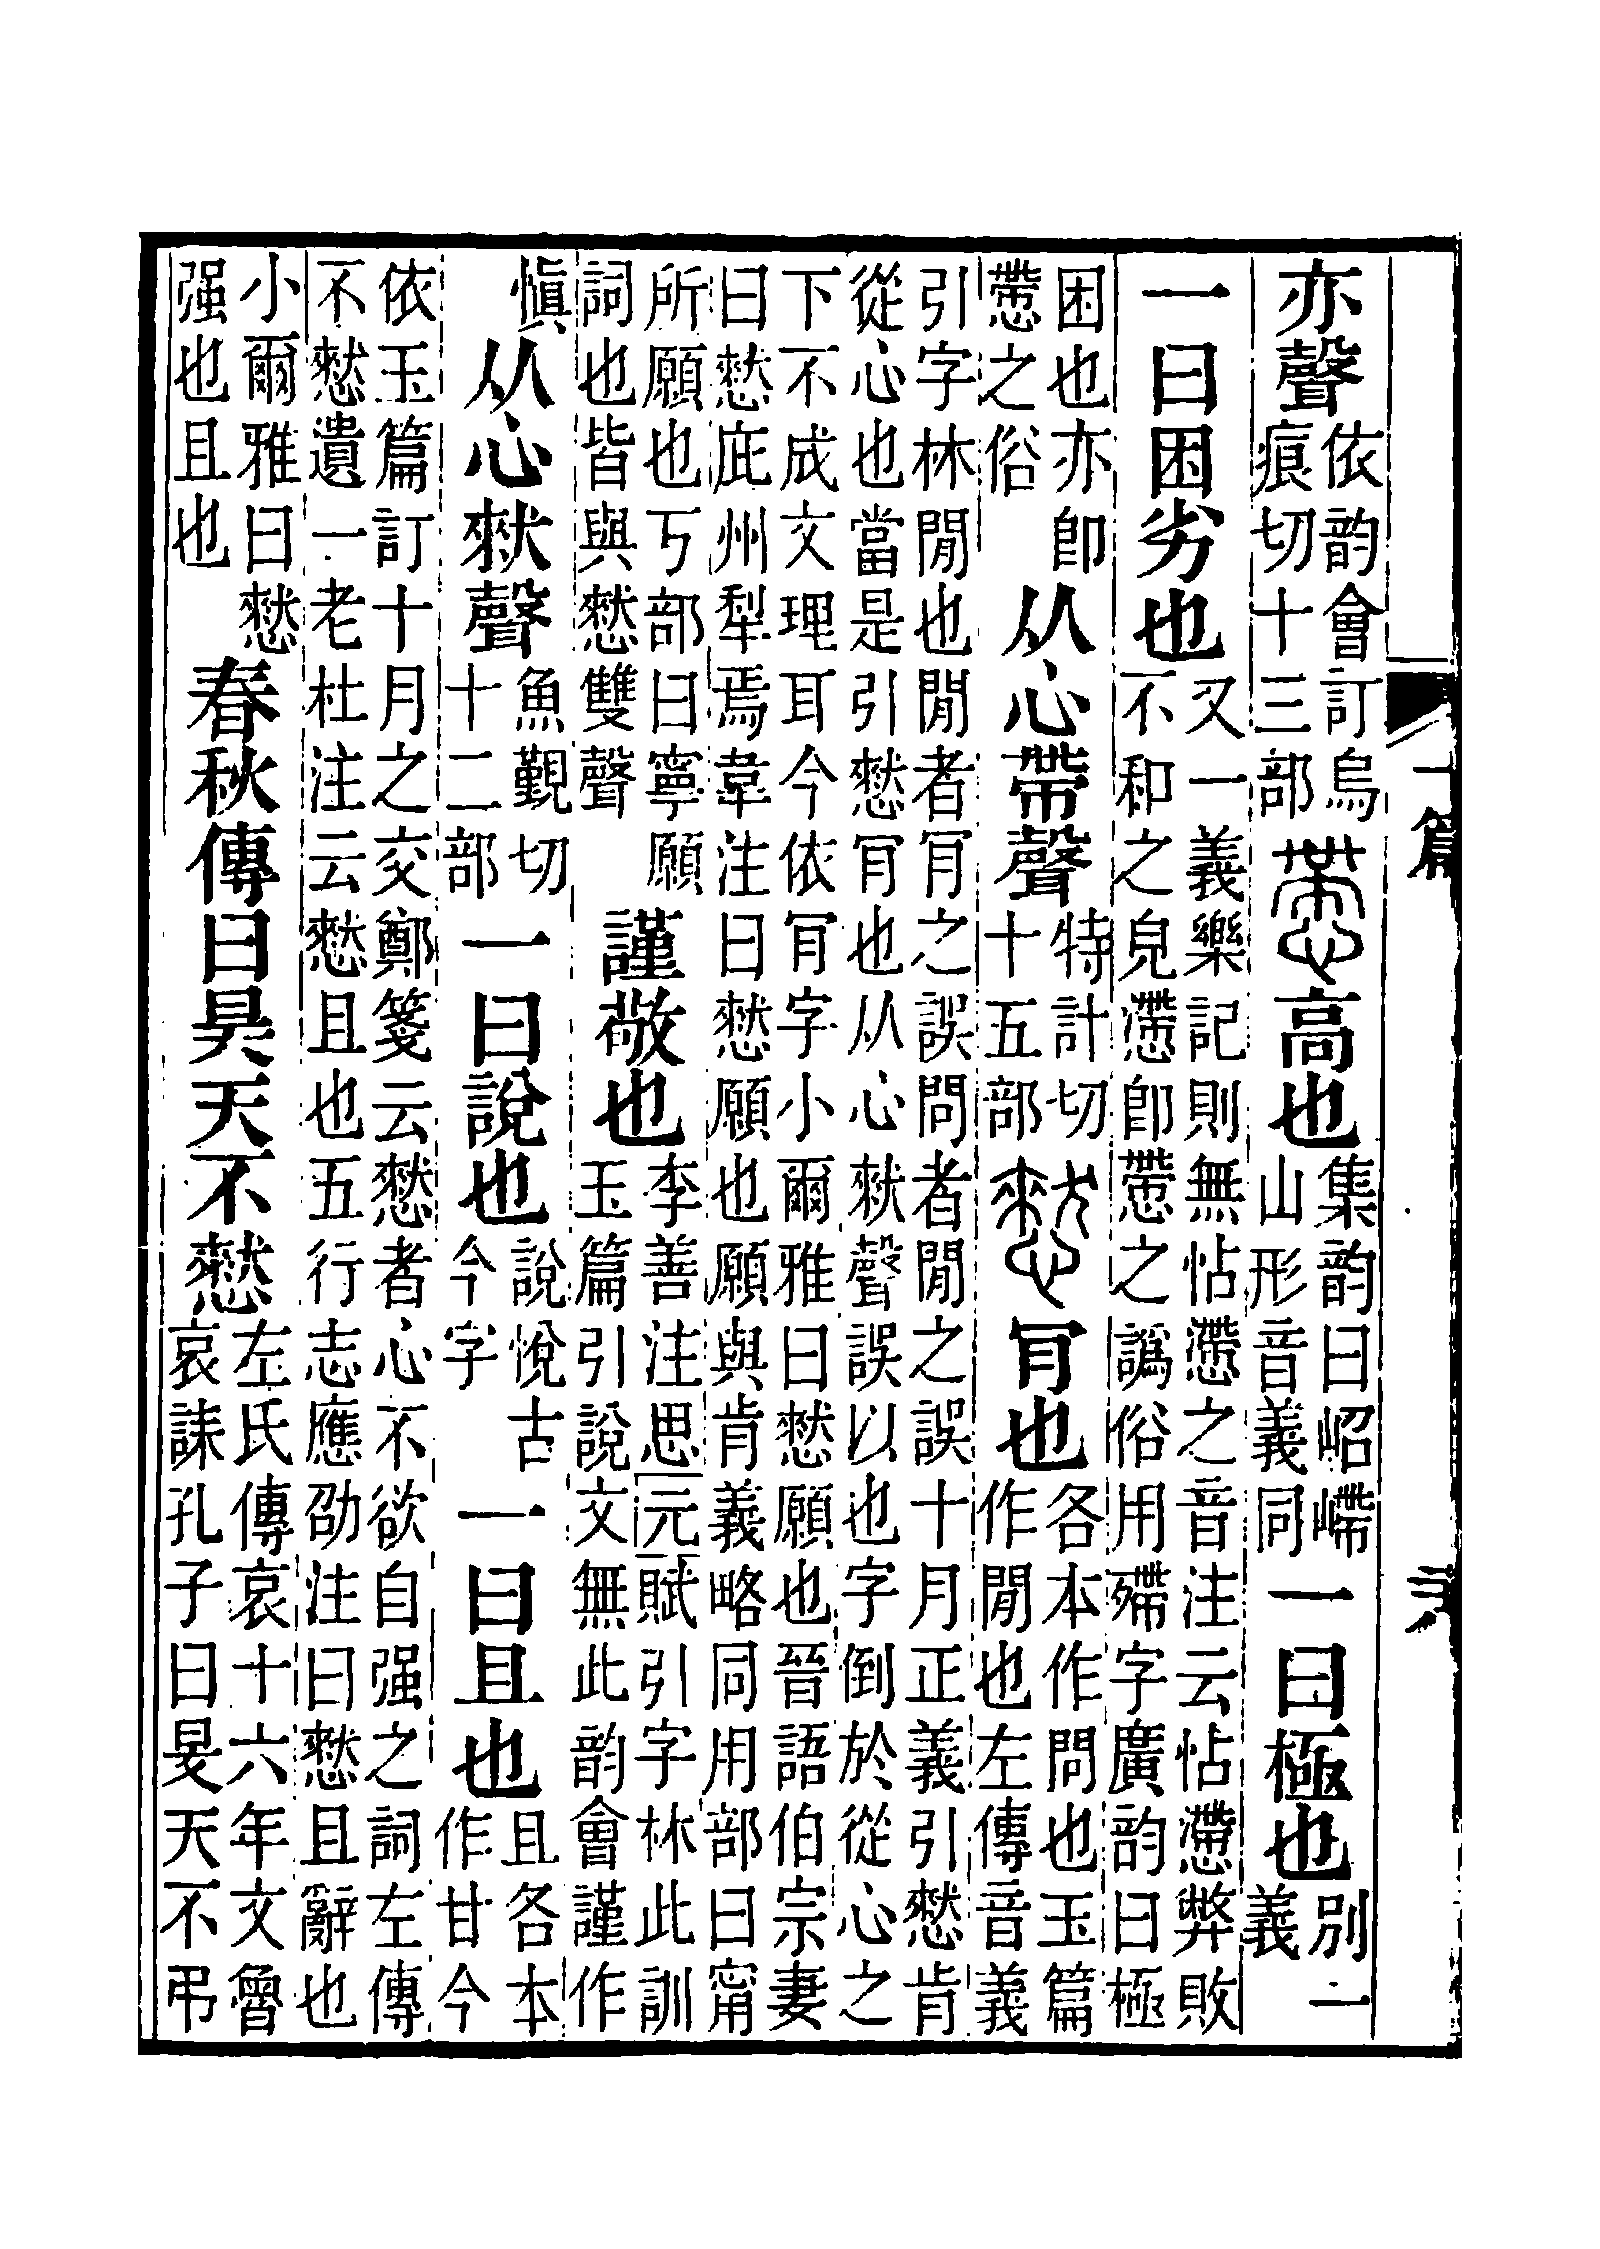 亦聲依韵會訂烏痕切十三部𢠫高也集韵曰岹嵽山形音義同一曰極也別一義
一曰困劣也又一義樂記則無怗懘之音注云怗懘弊敗不和之皃懘卽𢠫之譌俗用殢字廣韵曰極
困也亦卽懘之俗从心帶聲特計切十五部憖肎也各本作問也玉篇作閒也左傳音義
引字林閒也閒者肎之誤問者閒之誤十月正義引憖肯從心也當是引憖肎也从心猌聲誤以也字倒於從心之
下不成文理耳今依肎字小爾雅曰憖願也晉語伯宗妻曰憖庇州犁焉韋注曰憖願也願與肯義略同用部曰甯
所願也丂部曰寧願詞也皆與憖雙聲謹敬也李善注思元賦引字林此訓玉篇引說文無此韵會謹作
愼从心猌聲魚覲切十二部一曰說也說悅古今字一曰且也且各本作甘今
依玉篇訂十月之交鄭箋云憖者心不欲自强之詞左傳不憖遺一老杜注云憖且也五行志應劭注曰憖且辭也
小爾雅曰憖强也且也春秋傳曰昊天不憖左氏傳哀十六年文魯哀誄孔子曰旻天不弔